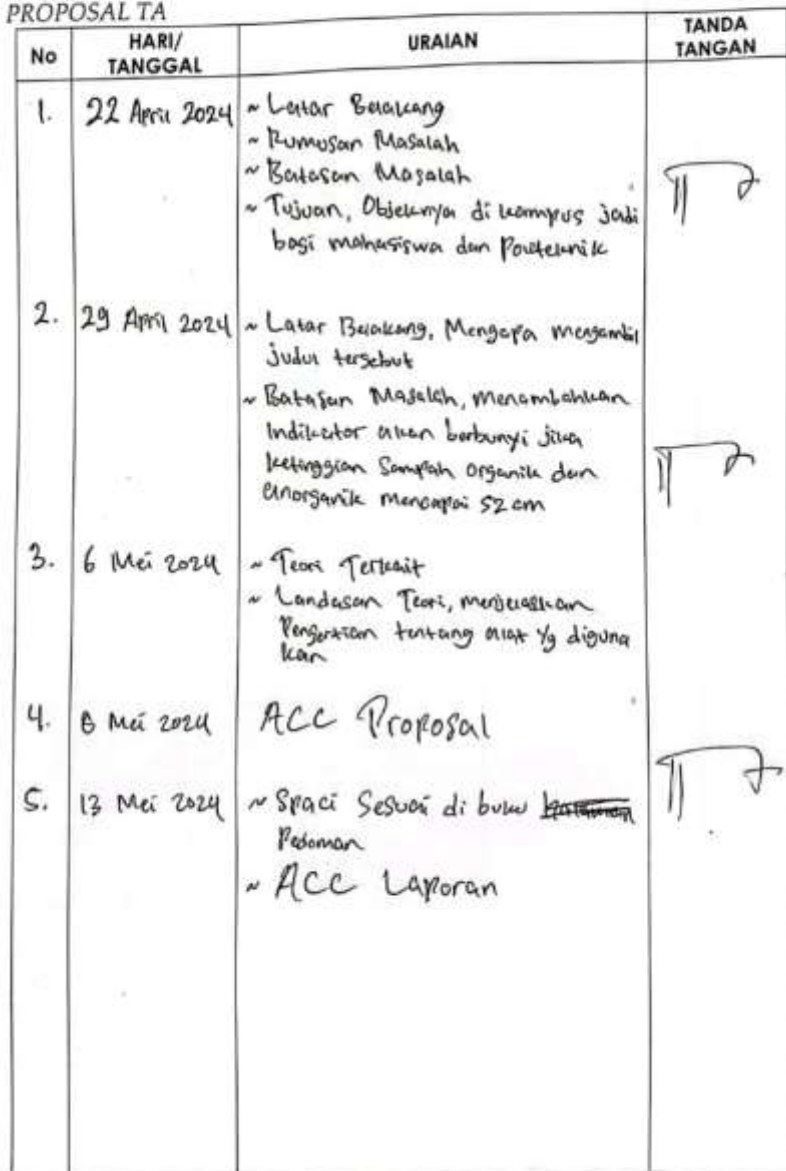 PROPOSAL TA
No
HARI/
TANGGAL
URAIAN
TANDA
TANGAN
1. 22 April 2024 ~ Latar Belakang
~ Rumusan Masalah
~ Batasan Masalah
~ Tujuan, Objeknya di kampus jadi
bagi mahasiswa dan Politeknik
2. 29 April 2024 ~ Latar Belakang, Mengapa mengambil
judul tersebut
~ Batasan Masalah, menambahkan
Indikator akan berbunyi jika
ketinggian Sampah organik dan
anorganik mencapai 52 cm
3. 6 Mei 2024 ~ Teori Terkait
~ Landasan Teori, menjelaskan
Pengertian tentang alat yg diguna
kan
4. 8 Mei 2024 ACC Proposal
5. 13 Mei 2024 ~ Spaci Sesuai di buku
Pedoman
~ ACC Laporan